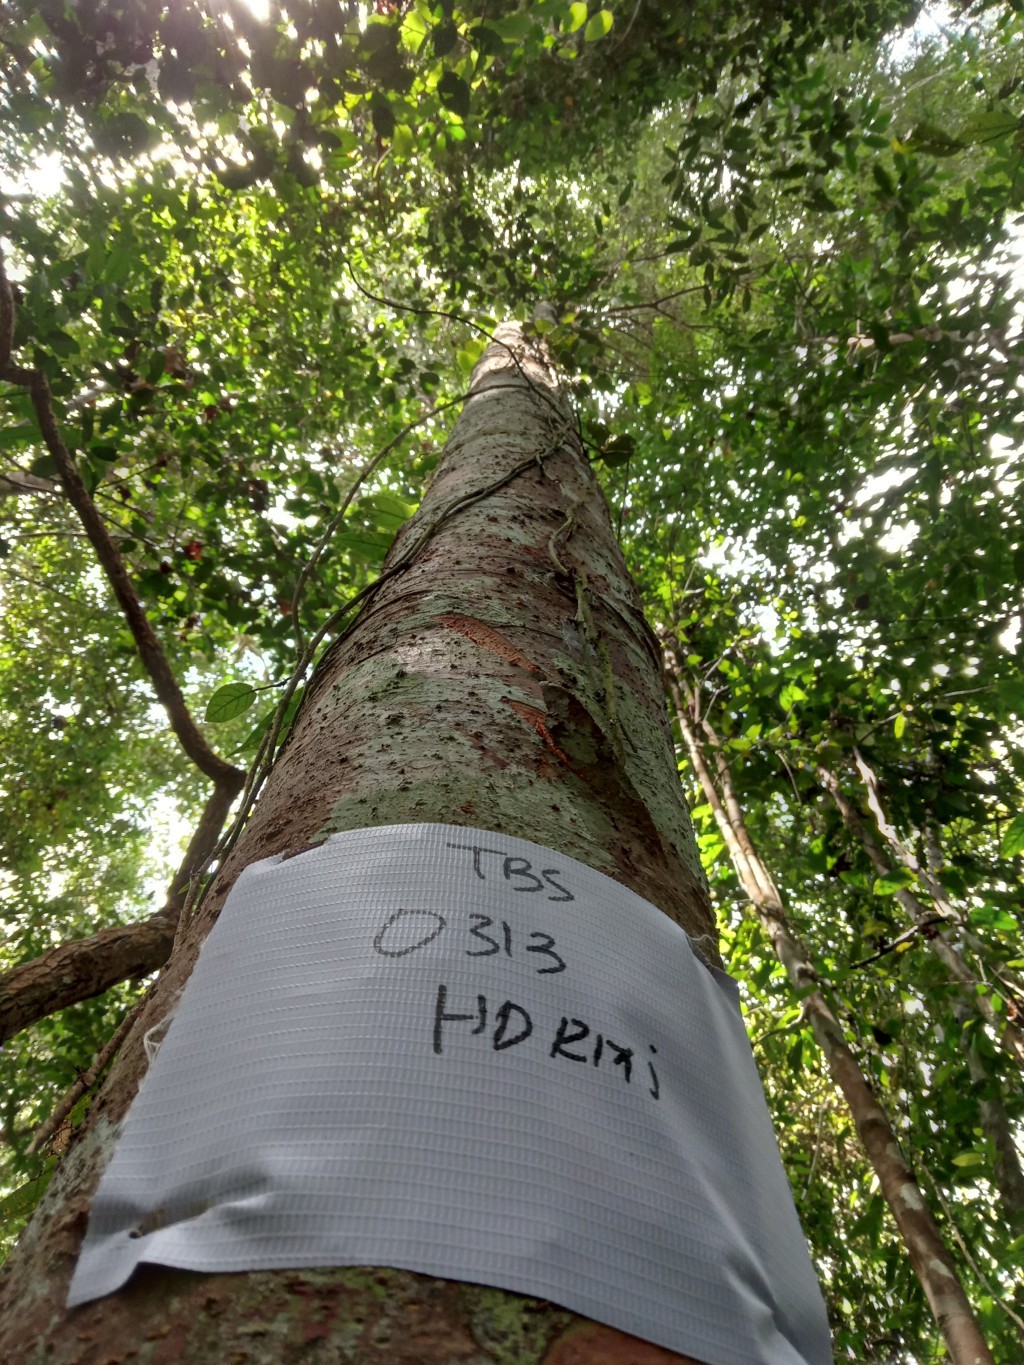 TBS
0313
HD RIMJ